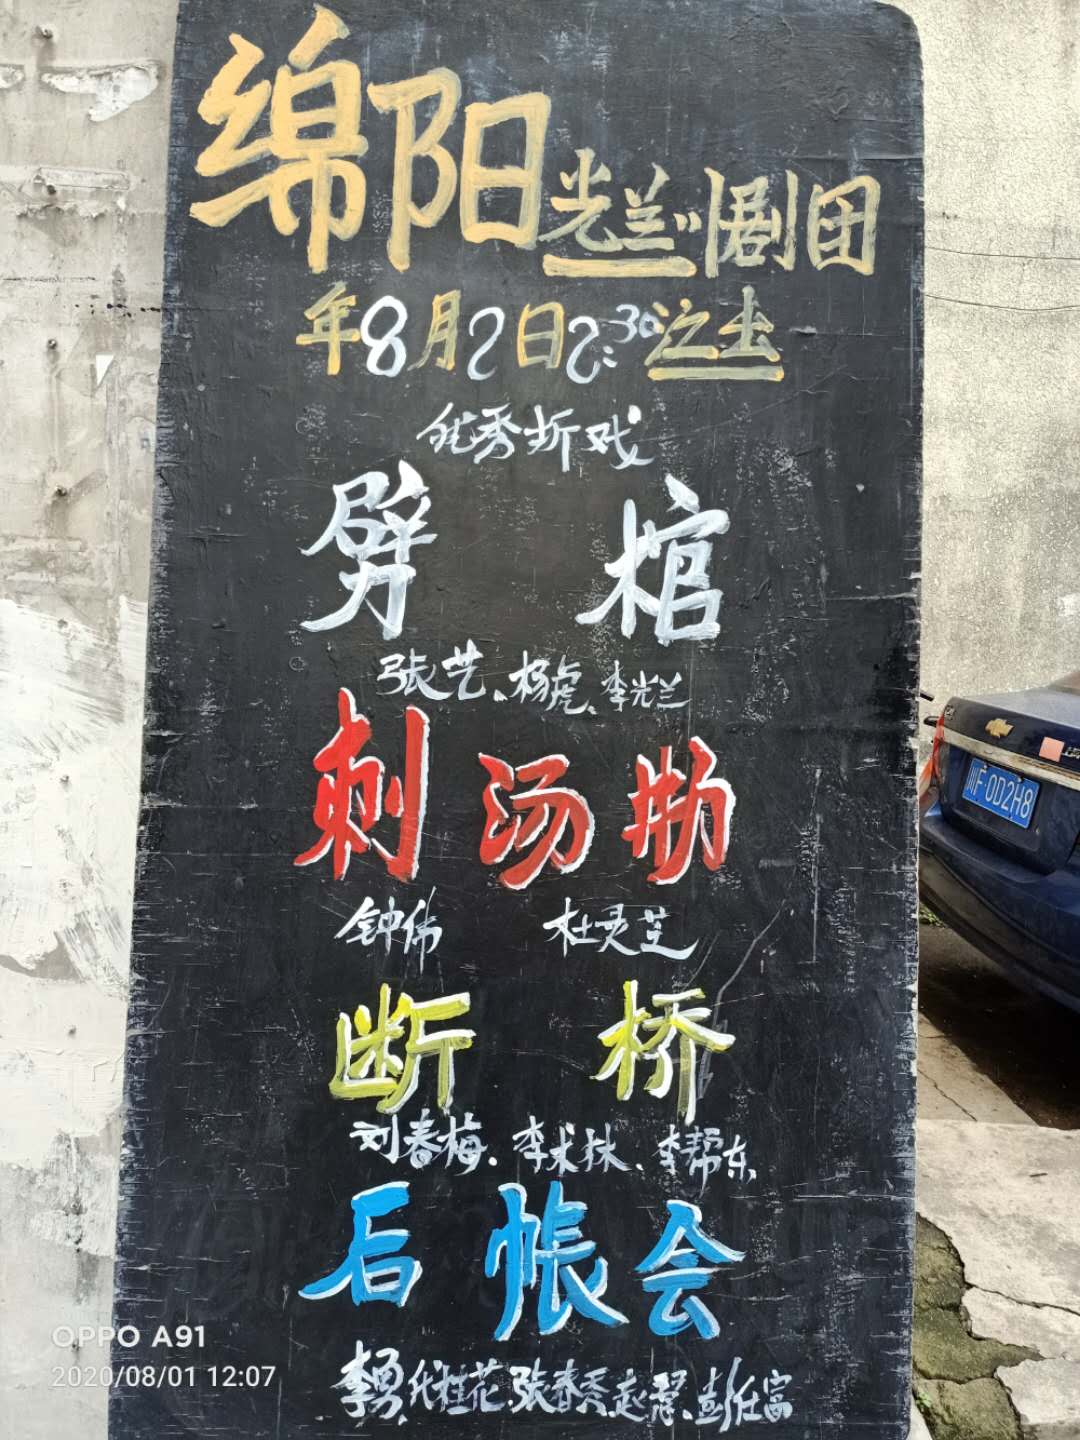 绵阳光兰川剧团
年8月2日2:30之土
优秀折戏
劈棺
张艺、杨虎、李光兰
刺汤勤
钟伟 杜灵芝
断桥
刘春梅、李术林、李帮东
后帐会
李勇、代桂花、张春秀、赵翠、彭任富
川F·0D2H8
OPPO A91
2020/08/01 12:07